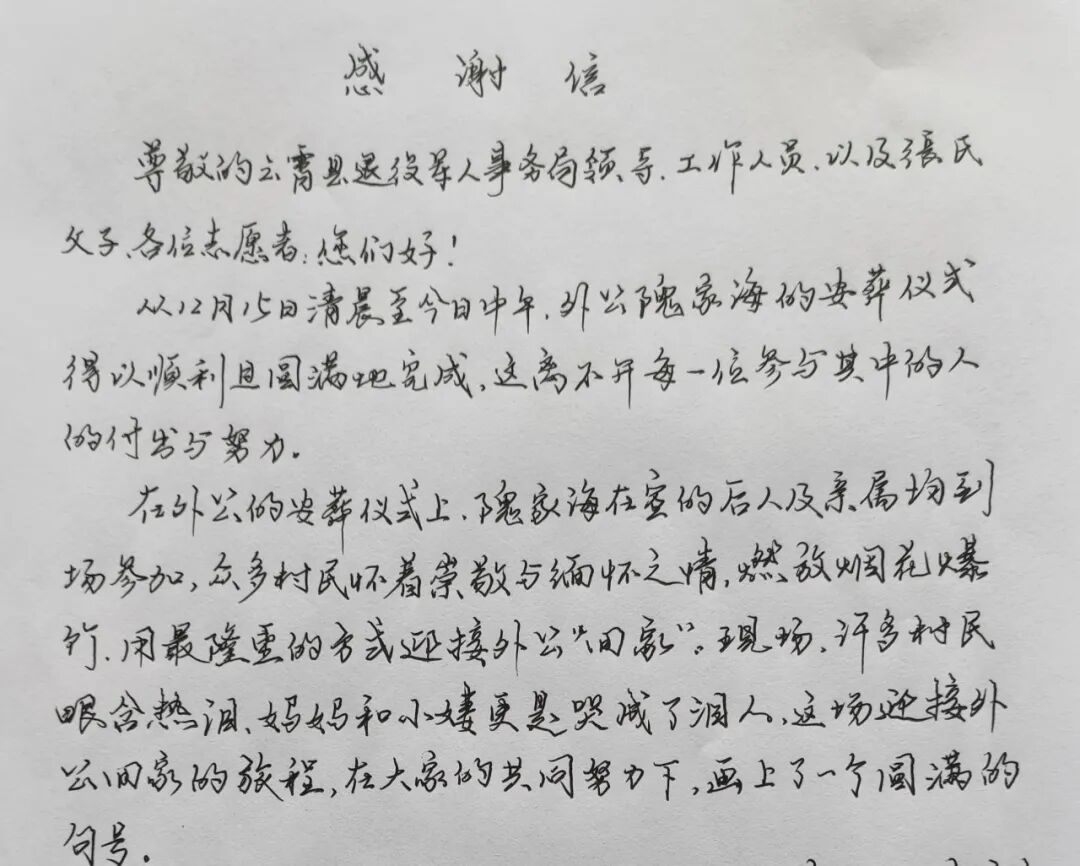 感谢信
尊敬的云霄县退役军人事务局领导、工作人员、以及張氏
父子、各位志愿者:您们好!
从12月15日清晨至今日中午,外公隗家海的安葬仪式
得以顺利且圆满地完成,这离不开每一位参与其中的人
的付出与努力。
在外公的安葬仪式上、隗家海在宣的后人及亲属均到
场参加,众多村民怀着崇敬与缅怀之情,燃放烟花爆
竹、用最隆重的方式迎接外公“回家”。现场、许多村民
眼含热泪、妈妈和小婕更是哭成了泪人、这场迎接外
公回家的旅程,在大家的共同努力下,画上了一个圆满的
句号。